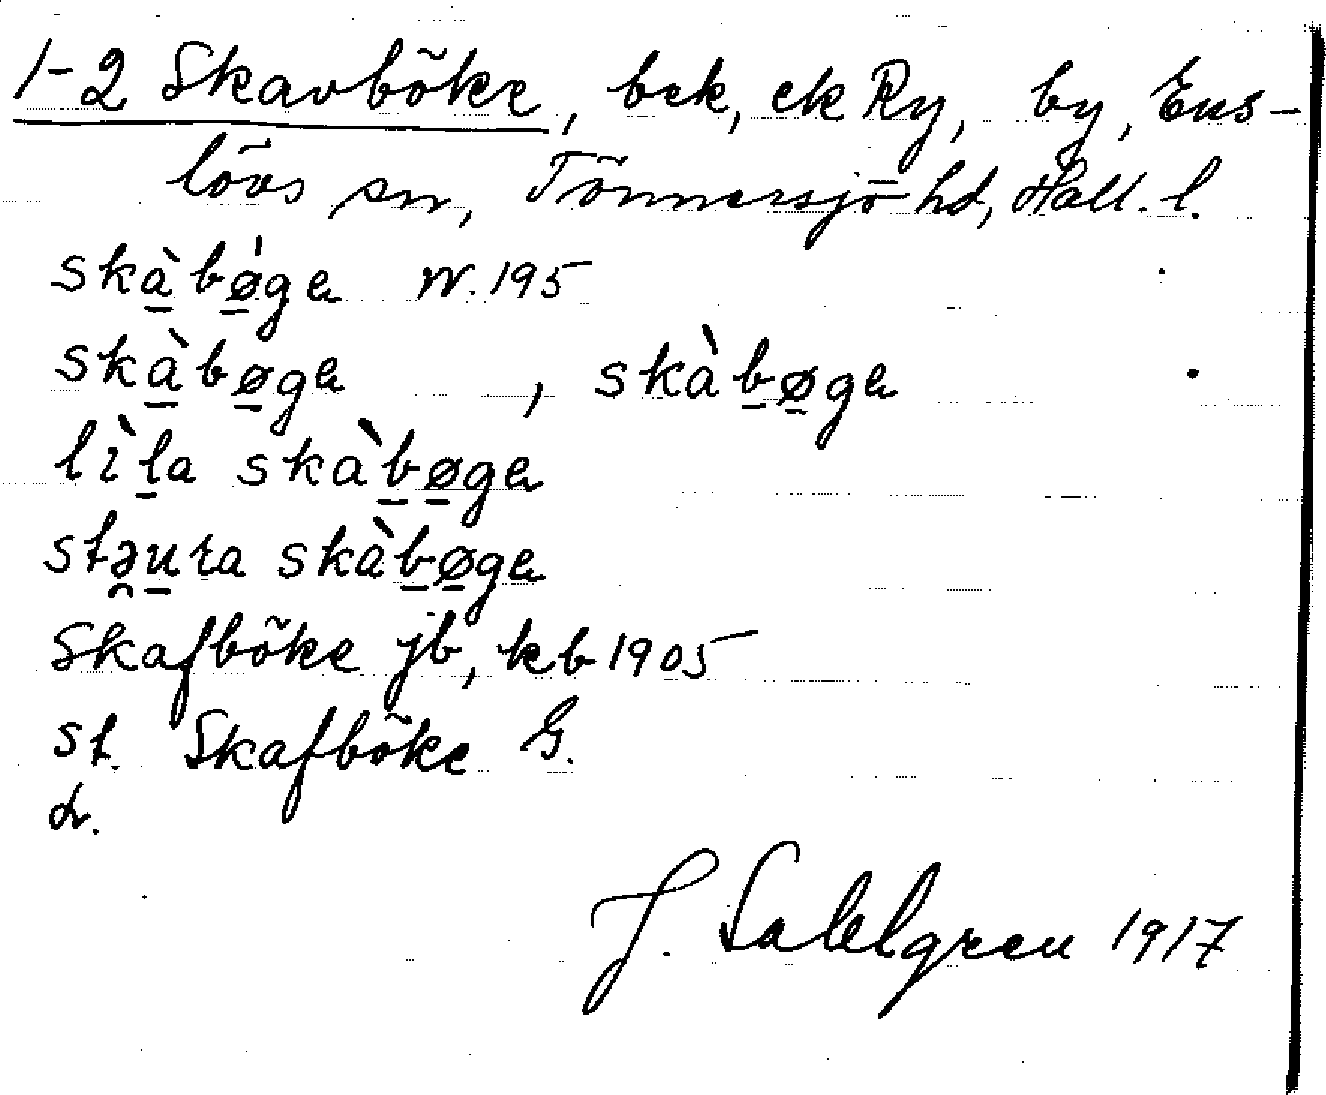 1-2 Skavböke, bek, ek Ry, by, Ens-
lövs sn, Tönnersjö hd, Hall. l.
skà̠bø̠̍ga N. 195
skà̠bø̠ga , skàb̠ø̠ga
lìl̠a skàb̠ø̠ga
stə̯u̠ra skàb̠ø̠ga
Skafböke jb, kb 1905
st. Skafböke G.
d.
J. Sahlgren 1917